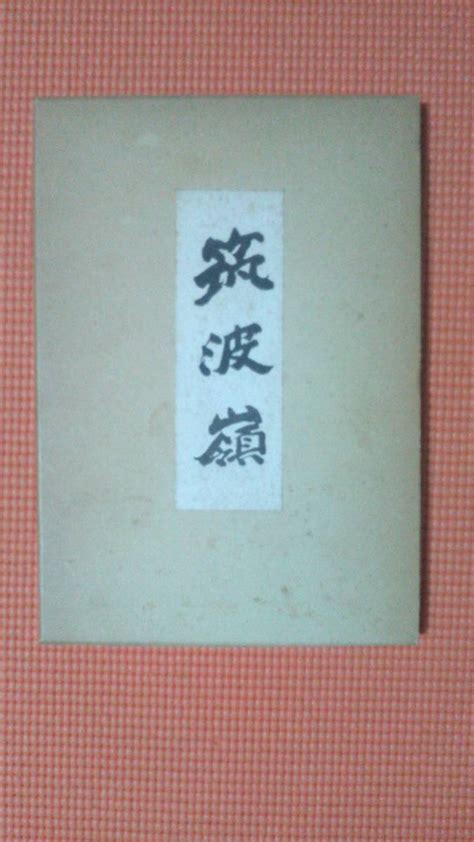 筑波嶺